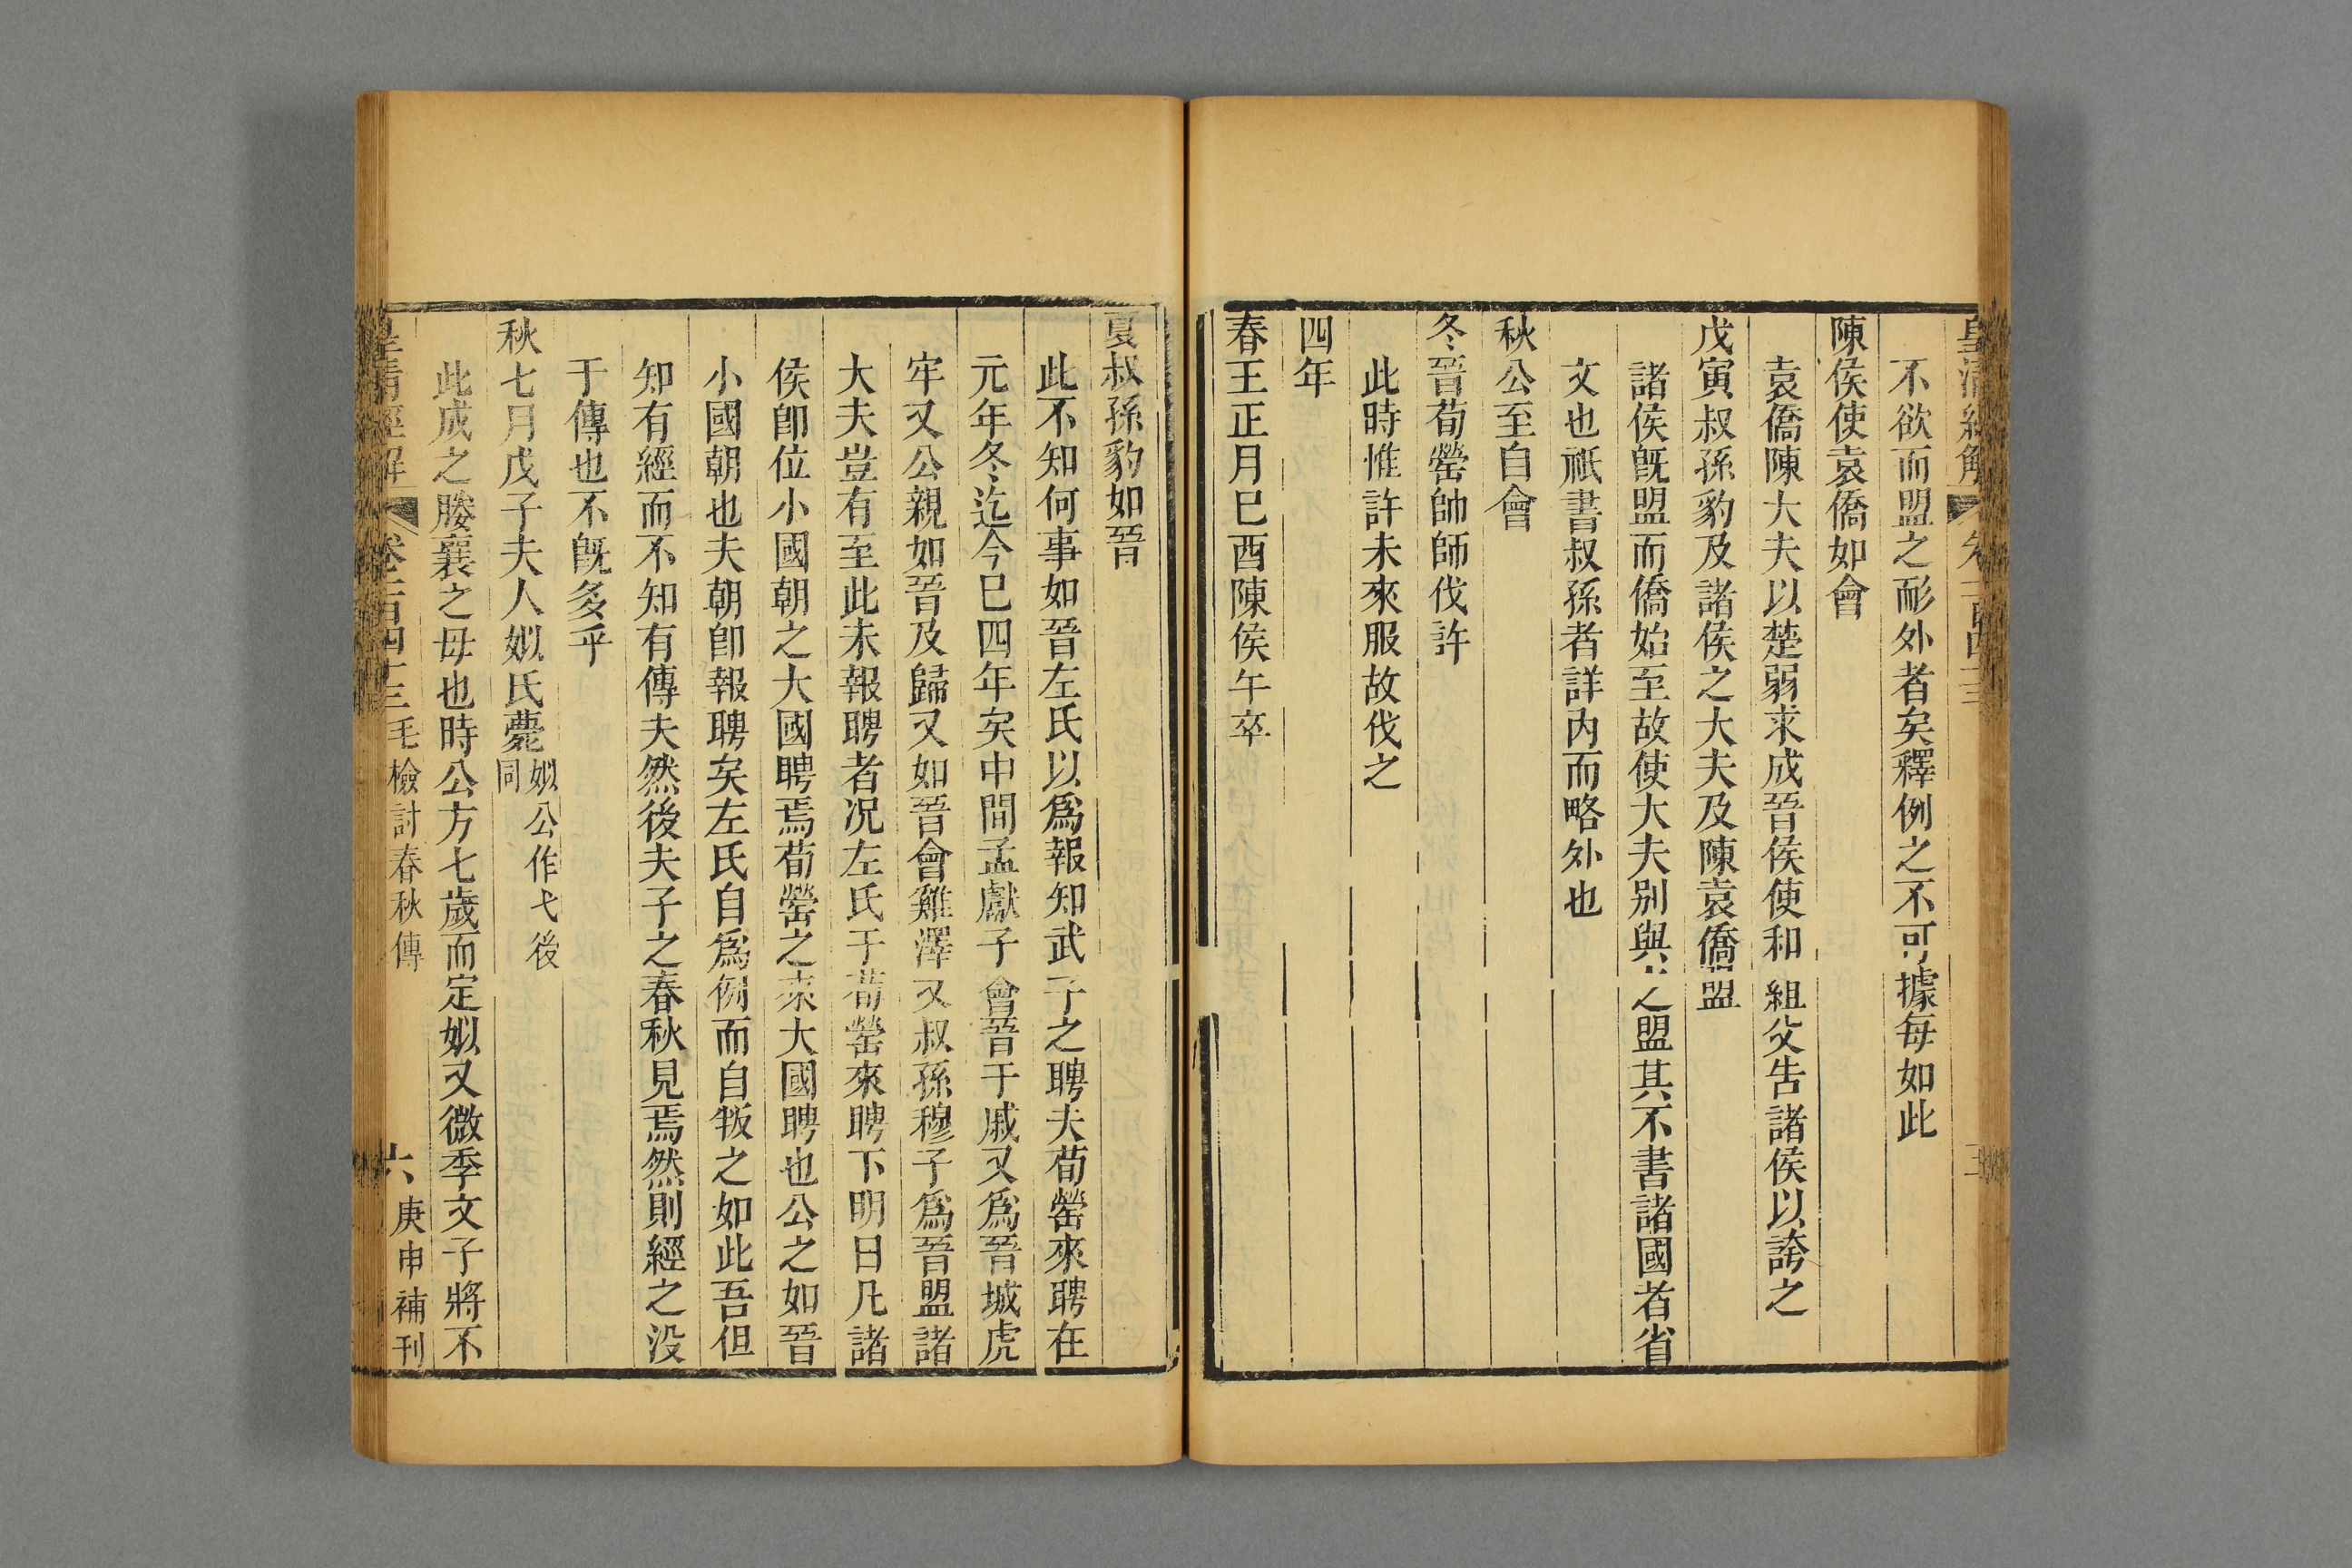 皇清經解
不欲而盟之耏外者矣釋例之不可據每如此
陳侯使袁僑如會
袁僑陳大夫以楚弱求成晉侯使和組父告諸侯以誇之
戊寅叔孫豹及諸侯之大夫及陳袁僑盟
諸侯旣盟而僑始至故使大夫别與之盟其不書諸國者省
文也祇書叔孫者詳內而略外也
秋公至自會
冬晉荀罃帥師伐許
此時惟許未來服故伐之
四年
春王正月巳酉陳侯午卒
夏叔孫豹如晉
此不知何事如晉左氏以爲報知武子之聘夫荀罃來聘在
元年冬迄今巳四年矣中間孟獻子會晉于戚又爲晉城虎
牢又公親如晉及歸又如晉會雞澤又叔孫穆子爲晉盟諸
大夫豈有至此未報聘者况左氏于荀罃來聘下明曰凡諸
侯卽位小國朝之大國聘焉荀罃之來大國聘也公之如晉
小國朝也夫朝卽報聘矣左氏自爲例而自叛之如此吾但
知有經而不知有傳夫然後夫子之春秋見焉然則經之没
于傳也不旣多乎
秋七月戊子夫人姒氏薨姒公作弋後同
此成之媵襄之母也時公方七歲而定姒又微季文子將不
皇清經解 卷一百四十三 毛檢討春秋傳 六 庚申補刊